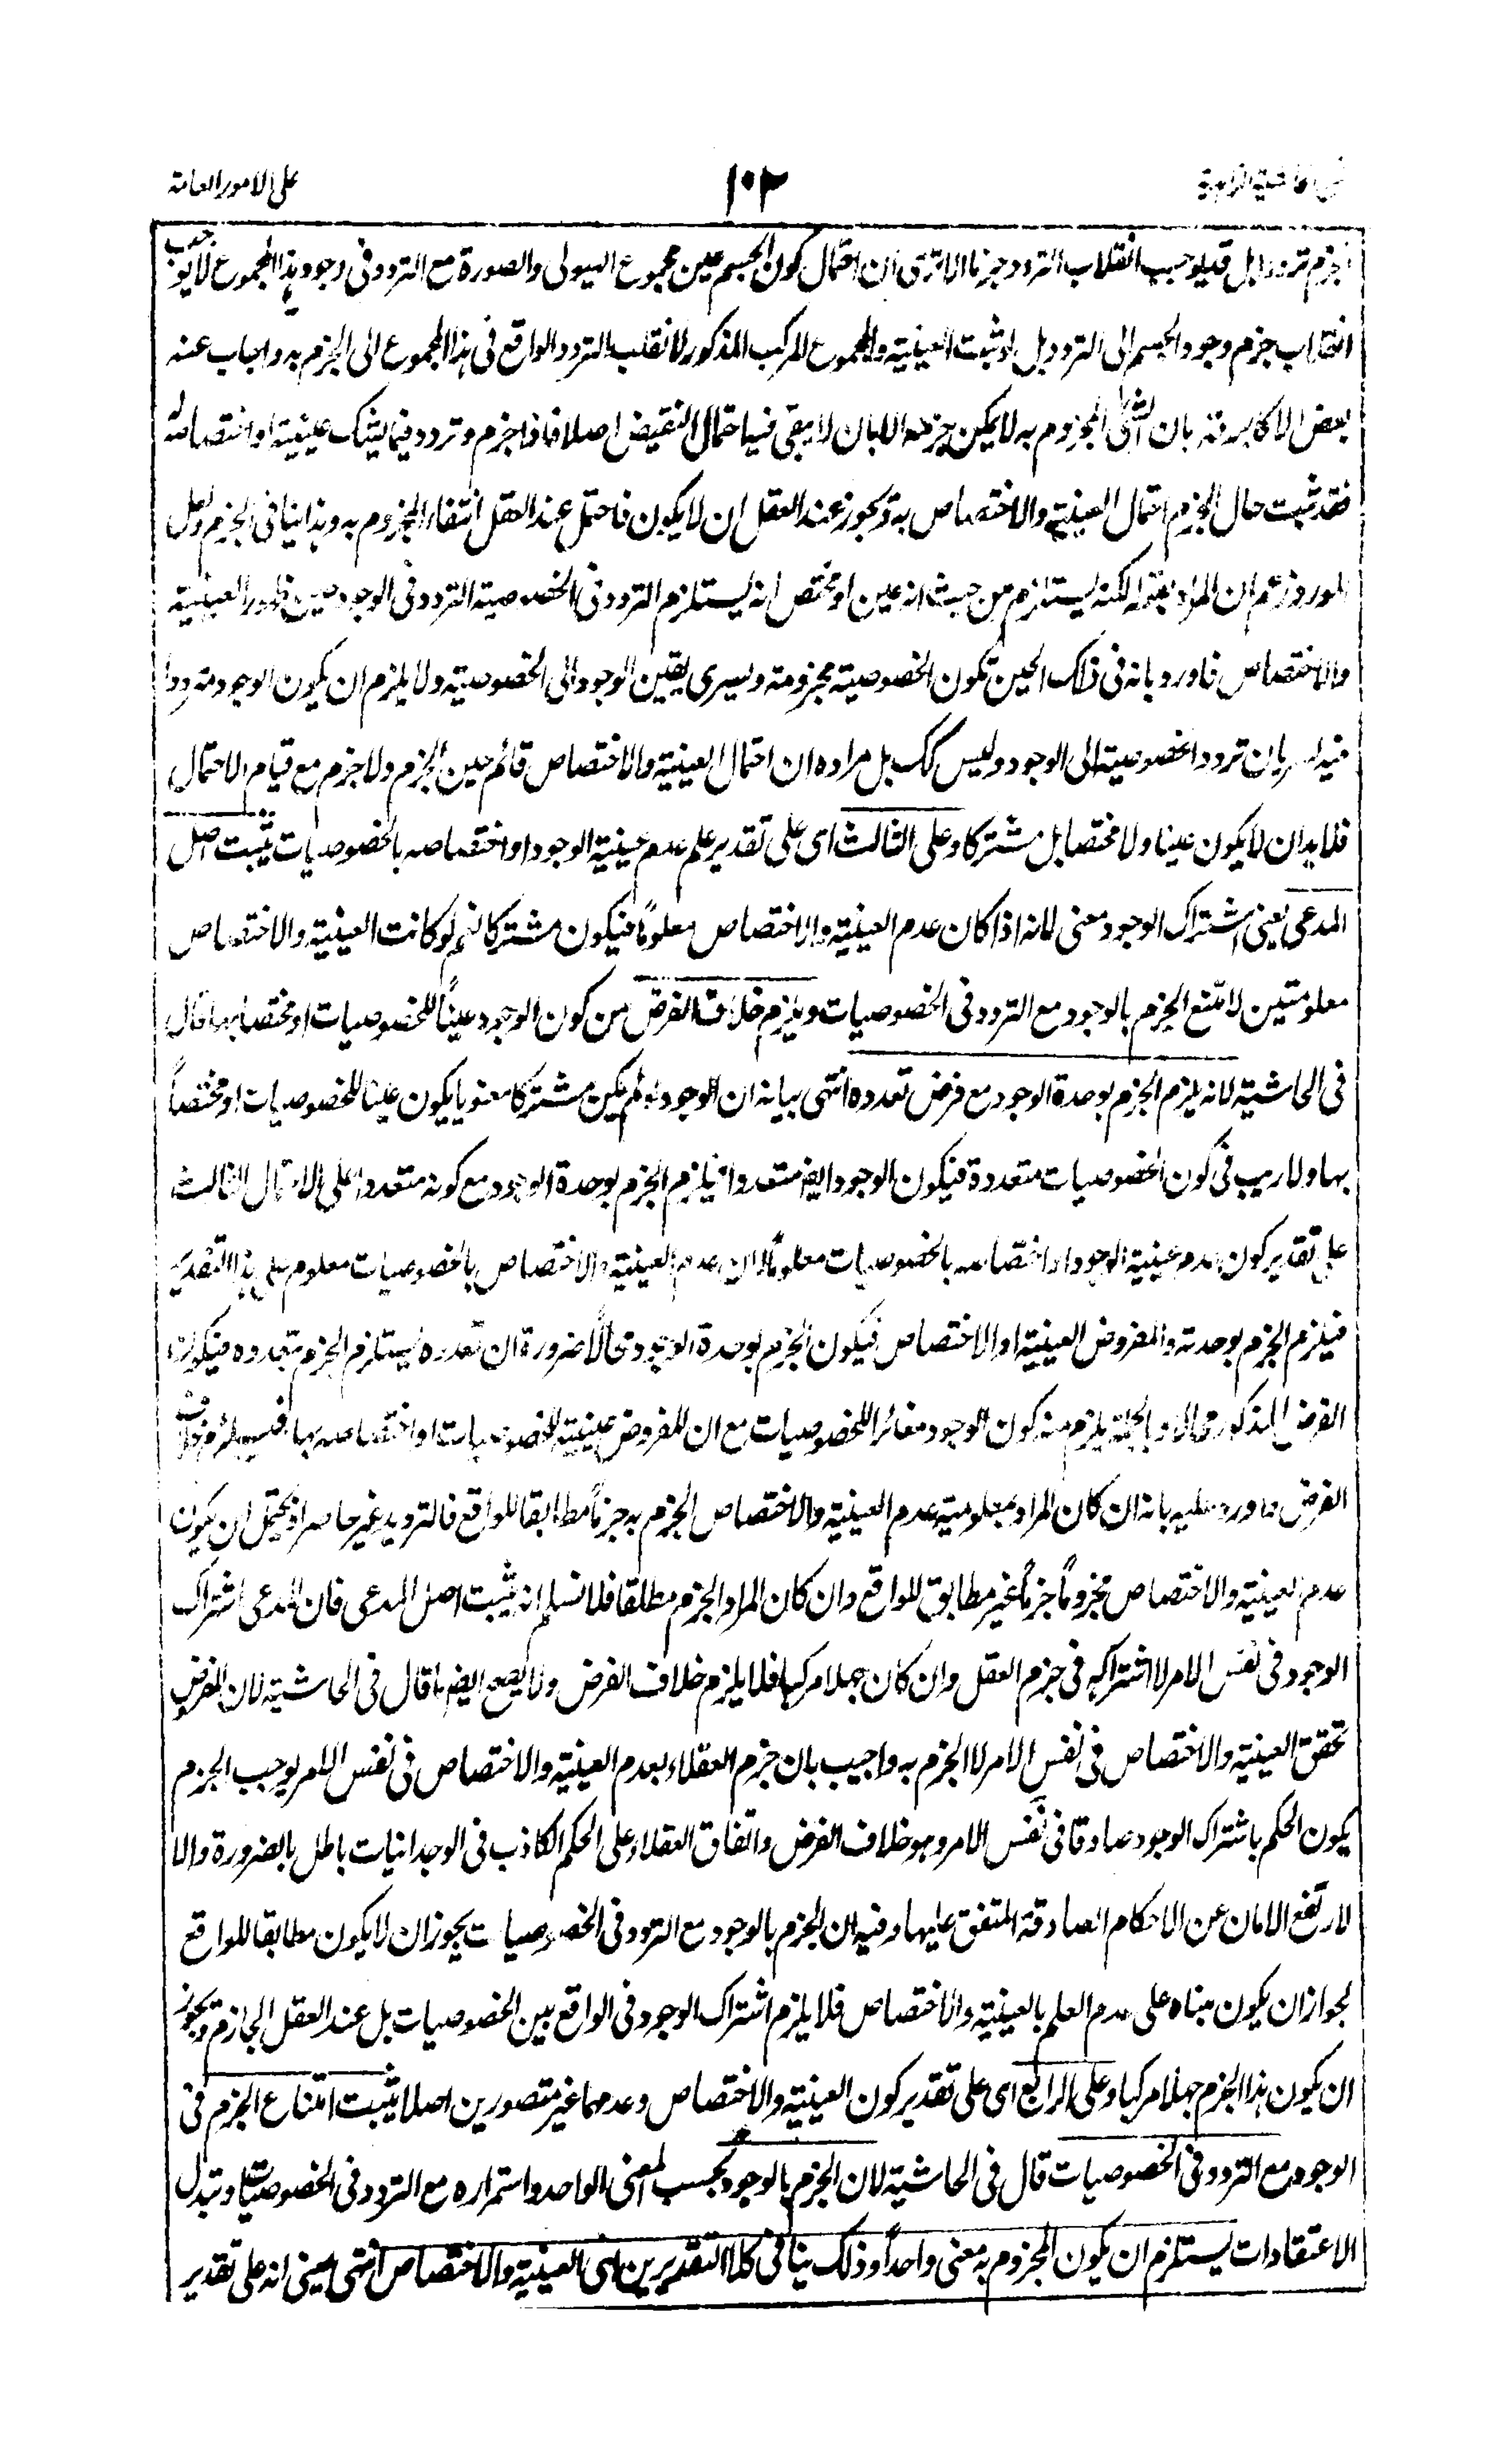 على الامور العامة
١٠٢
الجزم ترددا بل قد يوجب انقلاب التردد جزما الا ترى ان احتمال كون الجسم عين مجموع الهيولى والصورة مع التردد فى وجود هذا المجموع لا يوجب
انقلاب جزم وجود الجسم الى التردد بل لو ثبت العينية والمجموع المركب المذكور لانقلب التردد الواقع فى هذا المجموع الى الجزم به واجاب عنه
بعض الاكابر قده بان الشئ المجزوم به لا يمكن جزمه الا بان لا يبقى فيه احتمال النقيض اصلا فاذا جزم وتردد فيما يشك عينيته او اختصاصه
فقد ثبت حال الجزم احتمال العينية والاختصاص به ويجوز عند العقل ان لا يكون فاحتمل عند العقل انتفاء المجزوم به وهذا ينافى الجزم ولعل
المورد زعم ان المراد بقوله لكنه يستلزم من حيث انه عين او مختص انه يستلزم التردد فى الخصوصية التردد فى الوجود حين ظهور العينية
والاختصاص فاورد بانه فى ذلك الحين تكون الخصوصية مجزومة ويسرى يقين الوجود الى الخصوصية ولا يلزم ان يكون الوجود مترددا
فيه لسريان تردد الخصوصية الى الوجود وليس كك بل مراده ان احتمال العينية والاختصاص قائم حين الجزم ولا جزم مع قيام الاحتمال
فلا بد ان لا يكون عينا ولا مختصا بل مشتركا وعلى الثالث اى على تقدير علم عدم عينية الوجود او اختصاصه بالخصوصيات يثبت اصل
المدعى يعنى اشتراك الوجود معنى لانه اذا كان عدم العينية والاختصاص معلوماً فيكون مشتركا نعم لو كانت العينية والاختصاص
معلومتين لامتنع الجزم بالوجود مع التردد فى الخصوصيات ويلزم خلاف الفرض من كون الوجود عيناً للخصوصيات او مختصا بها قال
فى الحاشية لانه يلزم الجزم بوحدة الوجود مع فرض تعدده انتهى بيانه ان الوجود لو لم يكن مشتركا معنويا يكون عينا للخصوصيات او مختصاً
بها ولا ريب فى كون الخصوصيات متعددة فيكون الوجود ايضا متعددا فيلزم الجزم بوحدة الوجود مع كونه متعددا على الاحتمال الثالث
على تقدير كون عدم عينية الوجود او اختصاصه بالخصوصيات معلوماً لان عدم العينية والاختصاص بالخصوصيات معلوم على هذا التقدير
فيلزم الجزم بوحدته والمفروض العينية او الاختصاص فيكون الجزم بوحدة الوجود محالاً ضرورة ان تعدده يستلزم الجزم بتعدده فيكون
الفرض المذكور محالا وبالجملة يلزم منه كون الوجود مغائرا للخصوصيات مع ان المفروض عينية الخصوصيات او اختصاصه بها فيلزم خلاف
الفرض واورد عليه بانه ان كان المراد بمعلومية عدم العينية والاختصاص الجزم به جزماً مطابقا للواقع فالترديد غير حاصر اذ يحتمل ان يكون
عدم العينية والاختصاص مجزوماً جزماً غير مطابق للواقع وان كان المراد الجزم مطلقا فلا نسلم انه يثبت اصل المدعى فان المدعى اشتراك
الوجود فى نفس الامر لا اشتراكه فى جزم العقل وان كان جهلا مركبا فلا يلزم خلاف الفرض ولا يصح ايضا ما قال فى الحاشية لان المفروض
تحقق العينية والاختصاص فى نفس الامر لا الجزم به واجيب بان جزم العقلاء بعدم العينية والاختصاص فى نفس الامر يوجب الجزم
يكون الحكم باشتراك الوجود صادقا فى نفس الامر وهو خلاف الفرض واتفاق العقلاء على الحكم الكاذب فى الوجدانيات باطل بالضرورة والا
لارتفع الامان عن الاحكام الصادقة المتفق عليها وفيه ان الجزم بالوجود مع التردد فى الخصوصيات يجوز ان لا يكون مطابقا للواقع
لجواز ان يكون مبناه على عدم العلم بالعينية والاختصاص فلا يلزم اشتراك الوجود فى الواقع بين الخصوصيات بل عند العقل الجازم ويجوز
ان يكون هذا الجزم جهلا مركبا وعلى الرابع اى على تقدير كون العينية والاختصاص وعدمهما غير متصورين اصلا يثبت امتناع الجزم فى
الوجود مع التردد فى الخصوصيات قال فى الحاشية لان الجزم بالوجود بحسب المعنى الواحد واستمراره مع التردد فى الخصوصيات وتبدل
الاعتقادات يستلزم ان يكون المجزوم به معنى واحداً وذلك ينافى كلا التقديرين اعنى العينية والاختصاص انتهى يعنى انه على تقدير